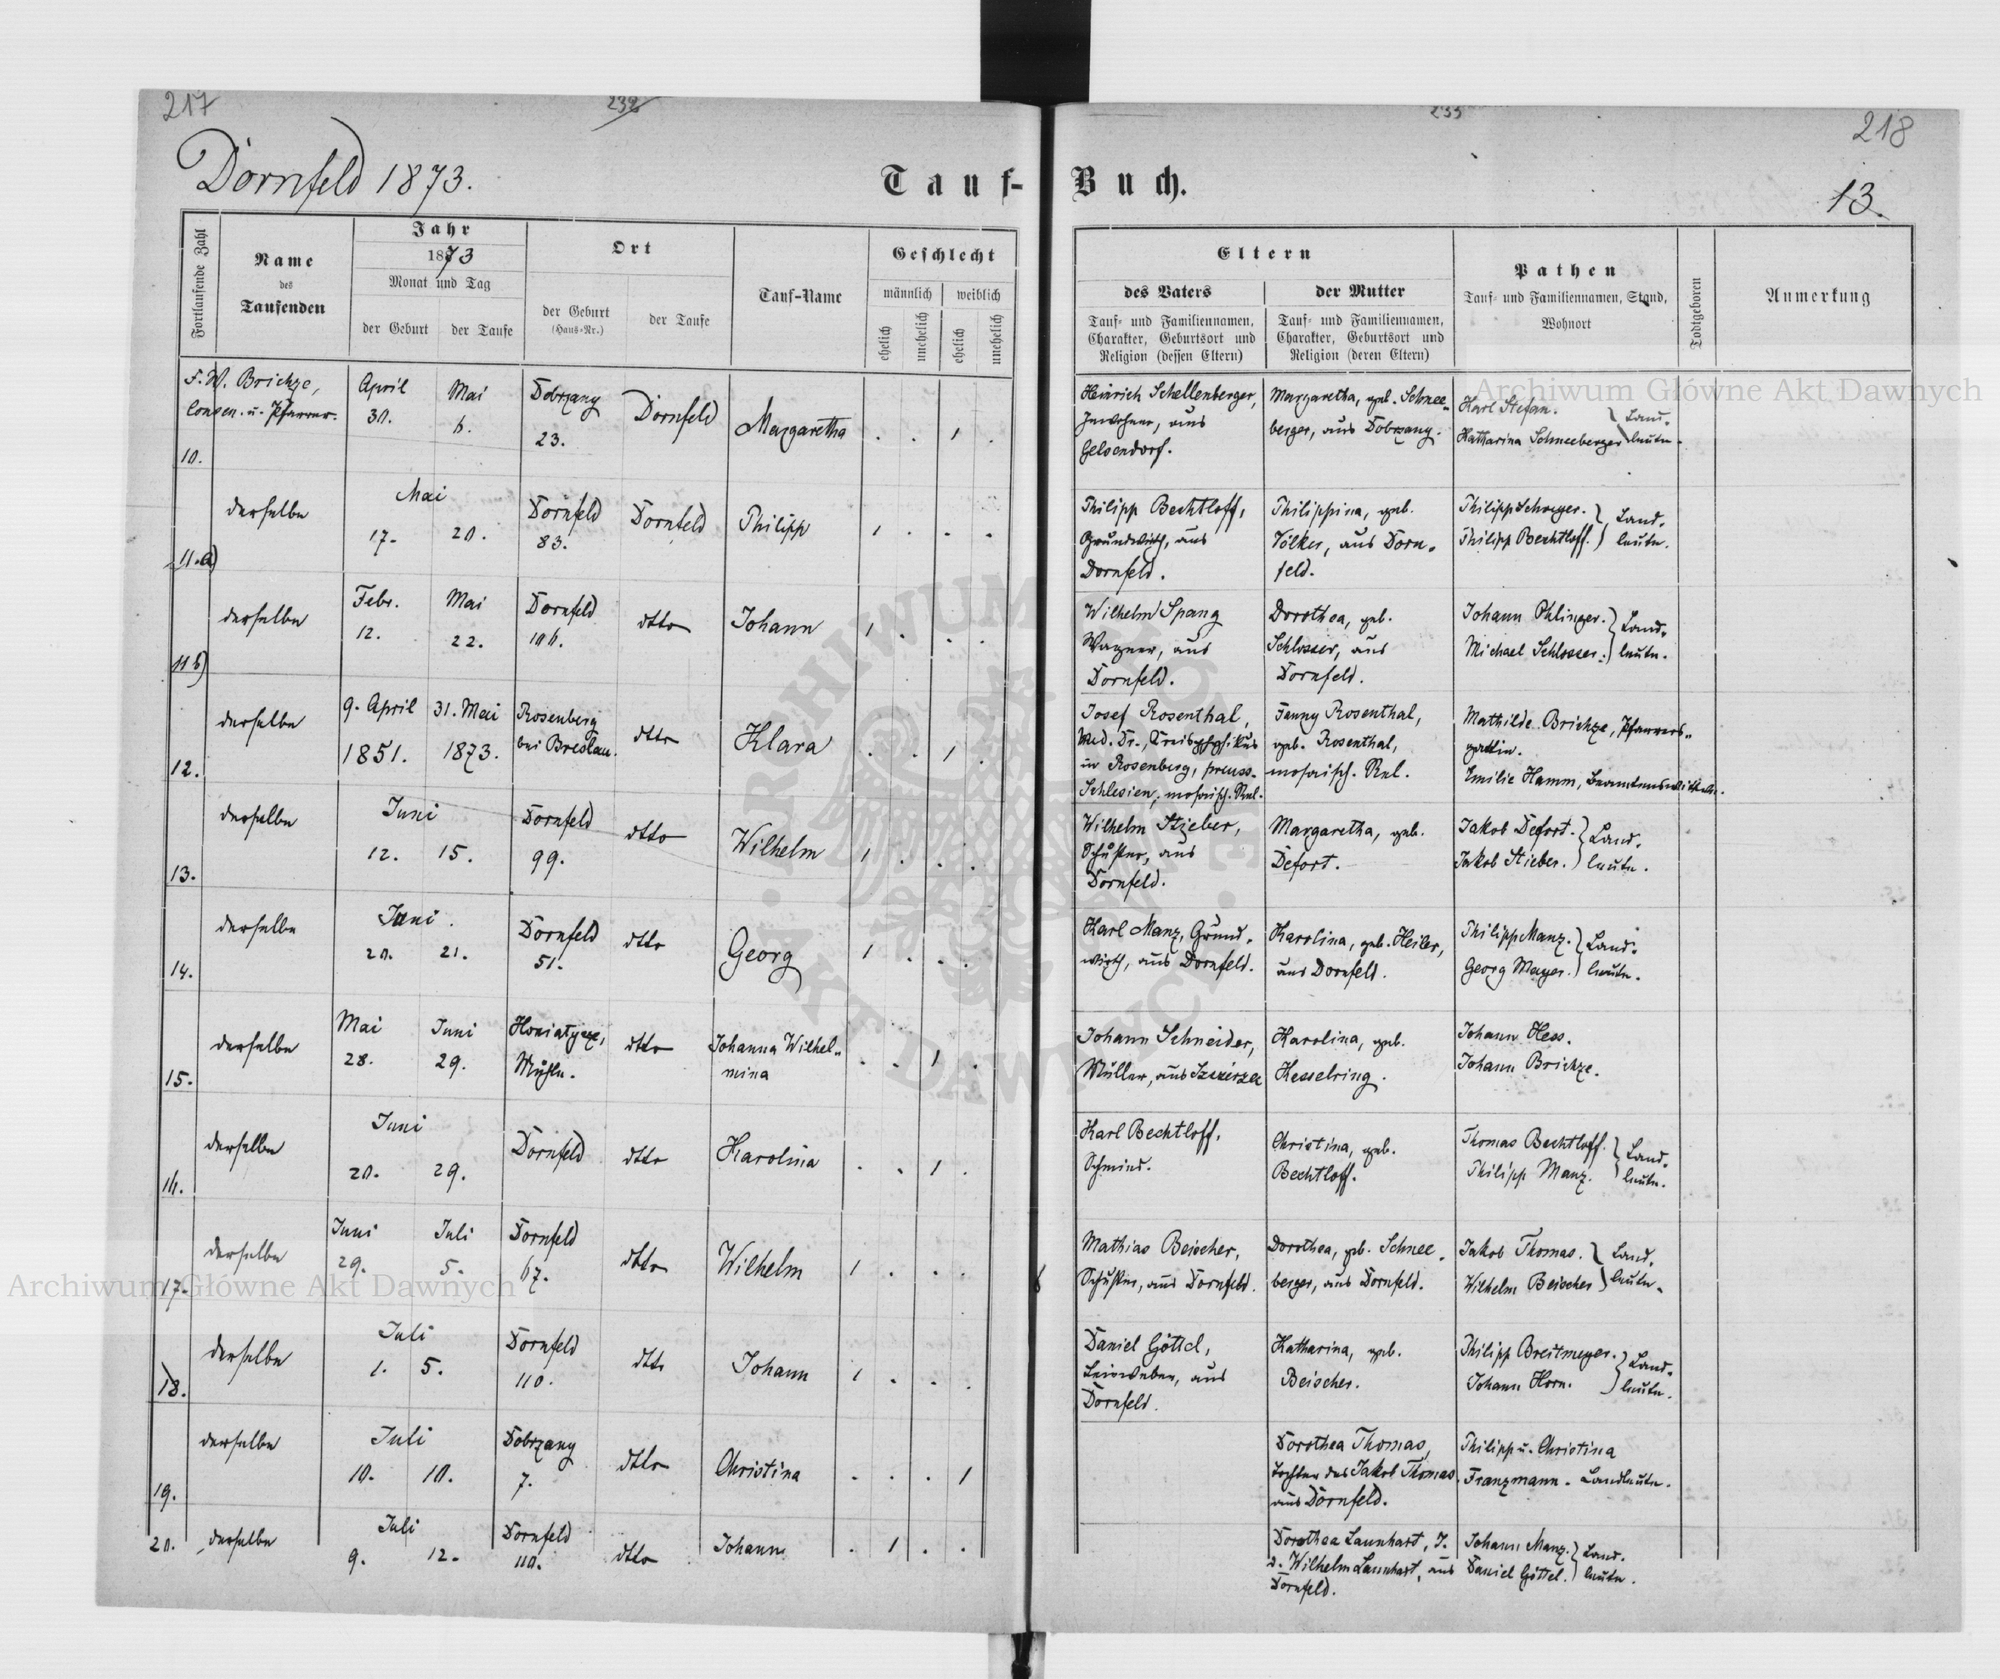 217
232
233
218
Dornfeld 1873.
Tauf-
Buch.
13.
Fortlaufende Zahl
Name
des
Taufenden
Jahr
1873
Monat und Tag
der Geburt
der Taufe
Ort
der Geburt
(Haus-Nr.)
der Taufe
Tauf-Name
Geschlecht
männlich
weiblich
ehelich
unehelich
ehelich
unehelich
Eltern
des Vaters
Tauf- und Familiennamen,
Charakter, Geburtsort und
Religion (dessen Eltern)
der Mutter
Tauf- und Familiennamen,
Charakter, Geburtsort und
Religion (deren Eltern)
Pathen
Tauf- und Familiennamen, Stand,
Wohnort
Todtgeboren
Anmerkung
10.
F. W. Brichze,
Consen. u. Pfarrer.
April
30.
Mai
6.
Dobrzany
23.
Dornfeld
Margaretha
. . 1 .
Heinrich Schellenberger,
Inwohner, aus
Gelsendorf.
Margaretha, geb. Schnee-
berger, aus Dobrzany.
Karl Stefan.
Katharina Schneeberger
Land-
leute.
11.a)
derselbe
Mai
17.
20.
Dornfeld
83.
Dornfeld
Philipp
1 . . .
Philipp Bechtloff,
Grundwirth, aus
Dornfeld.
Philippina, geb.
Völker, aus Dorn-
feld.
Philipp
Philipp Bechtloff.
Land-
leute.
11b)
derselbe
Febr.
12.
Mai
22.
Dornfeld
106.
dtto
Johann
1 . . .
Wilhelm Spang
Wagner, aus
Dornfeld.
Dorothea, geb.
Schlosser, aus
Dornfeld.
Johann Ohlinger.
Michael Schlosser.
Land-
leute.
12.
derselbe
9. April
1851.
31. Mai
1873.
Rosenberg
bei Breslau.
dtto
Klara
. . 1 .
Josef Rosenthal,
Med. Dr., Kreisphysikus
in Rosenberg, preuss.
Schlesien, mosaisch. Rel.
Fanny Rosenthal,
geb. Rosenthal,
mosaisch. Rel.
Mathilde Brichze, Pfarrers-
gattin.
Emilie Hamm, Beamtenswittwe.
13.
derselbe
Juni
12.
15.
Dornfeld
99.
dtto
Wilhelm
1 . . .
Wilhelm Stieber,
Schuster, aus
Dornfeld.
Margaretha, geb.
Defort.
Jakob Defort.
Jakob Stieber.
Land-
leute.
14.
derselbe
Juni.
20.
21.
Dornfeld
51.
dtto
Georg
1 . . .
Karl Manz, Grund-
wirth, aus Dornfeld.
Karolina, geb. Heiler,
aus Dornfeld.
Philipp Manz.
Georg Mayer.
Land-
leute.
15.
derselbe
Mai
28.
Juni
29.
Honiatycze,
Mühle.
dtto
Johanna Wilhel-
mina
. . 1 .
Johann Schneider,
Müller, aus Szczerzec
Karolina, geb.
Hesselring.
Johann Hess.
Johann Brichze.
16.
derselbe
Juni
20.
29.
Dornfeld
dtto
Karolina
. . 1 .
Karl Bechtloff,
Schmied.
Christina, geb.
Bechtloff.
Thomas Bechtloff.
Philipp Manz.
Land-
leute.
17.
derselbe
Juni
29.
Juli
5.
Dornfeld
67.
dtto
Wilhelm
1 . . .
Mathias Beischer,
Schuster, aus Dornfeld.
Dorothea, geb. Schnee-
berger, aus Dornfeld.
Jakob Thomas.
Wilhelm Beischer
Land-
leute.
18.
derselbe
Juli
1.
5.
Dornfeld
110.
dtto
Johann
1 . . .
Daniel Göttel,
Leinweber, aus
Dornfeld.
Katharina, geb.
Beischer.
Philipp Breitmeyer.
Johann Horn.
Land-
leute.
19.
derselbe
Juli
10.
10.
Dobrzany
7.
dtto
Christina
. . . 1
Dorothea Thomas,
Tochter des Jakob Thomas
aus Dornfeld.
Philipp u. Christina
Franzmann. Landleute.
20.
derselbe
Juli
9.
12.
Dornfeld
110.
dtto
Johann
. 1 . .
Dorothea Launhart, T.
d. Wilhelm Launhart, aus
Dornfeld.
Johann Manz.
Daniel Göttel.
Land-
leute.
Archiwum Główne Akt Dawnych
Archiwum Główne Akt Dawnych
ARCHIWUM GŁÓWNE AKT DAWNYCH